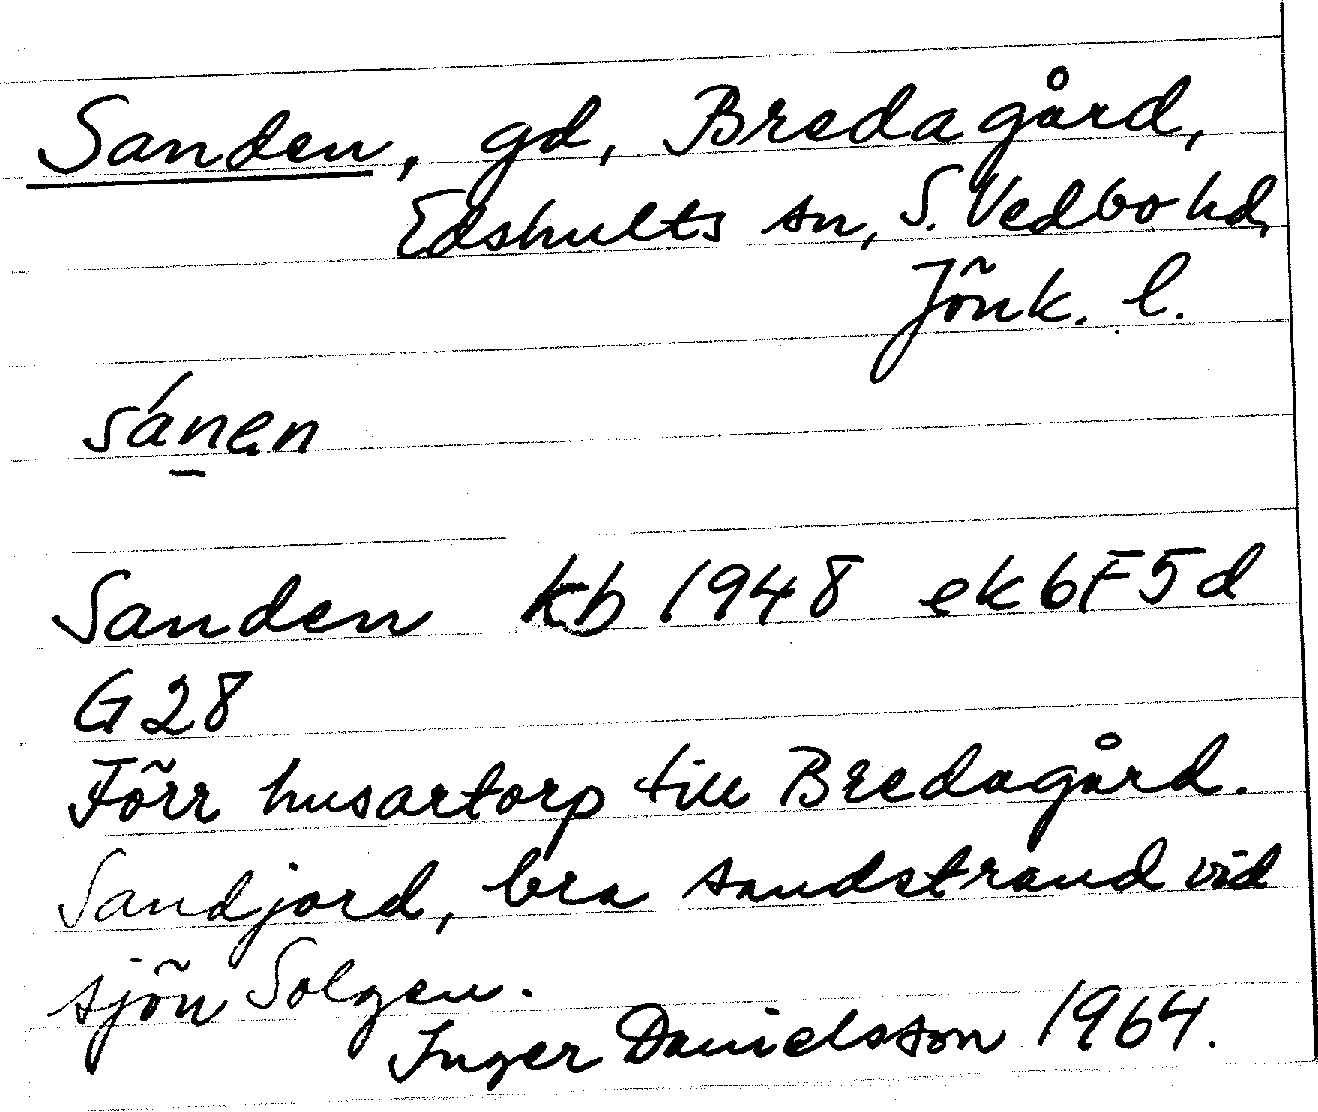 Sanden, gd, Bredagård,
Edshults sn, S. Vedbo hd,
Jönk. l.
sánen
Sanden kb 1948 ekbF5d
G28
Förr husartorp till Bredagård.
Sandjord, bra sandstrand vid
sjön Solgen.
Inger Danielsson 1964.